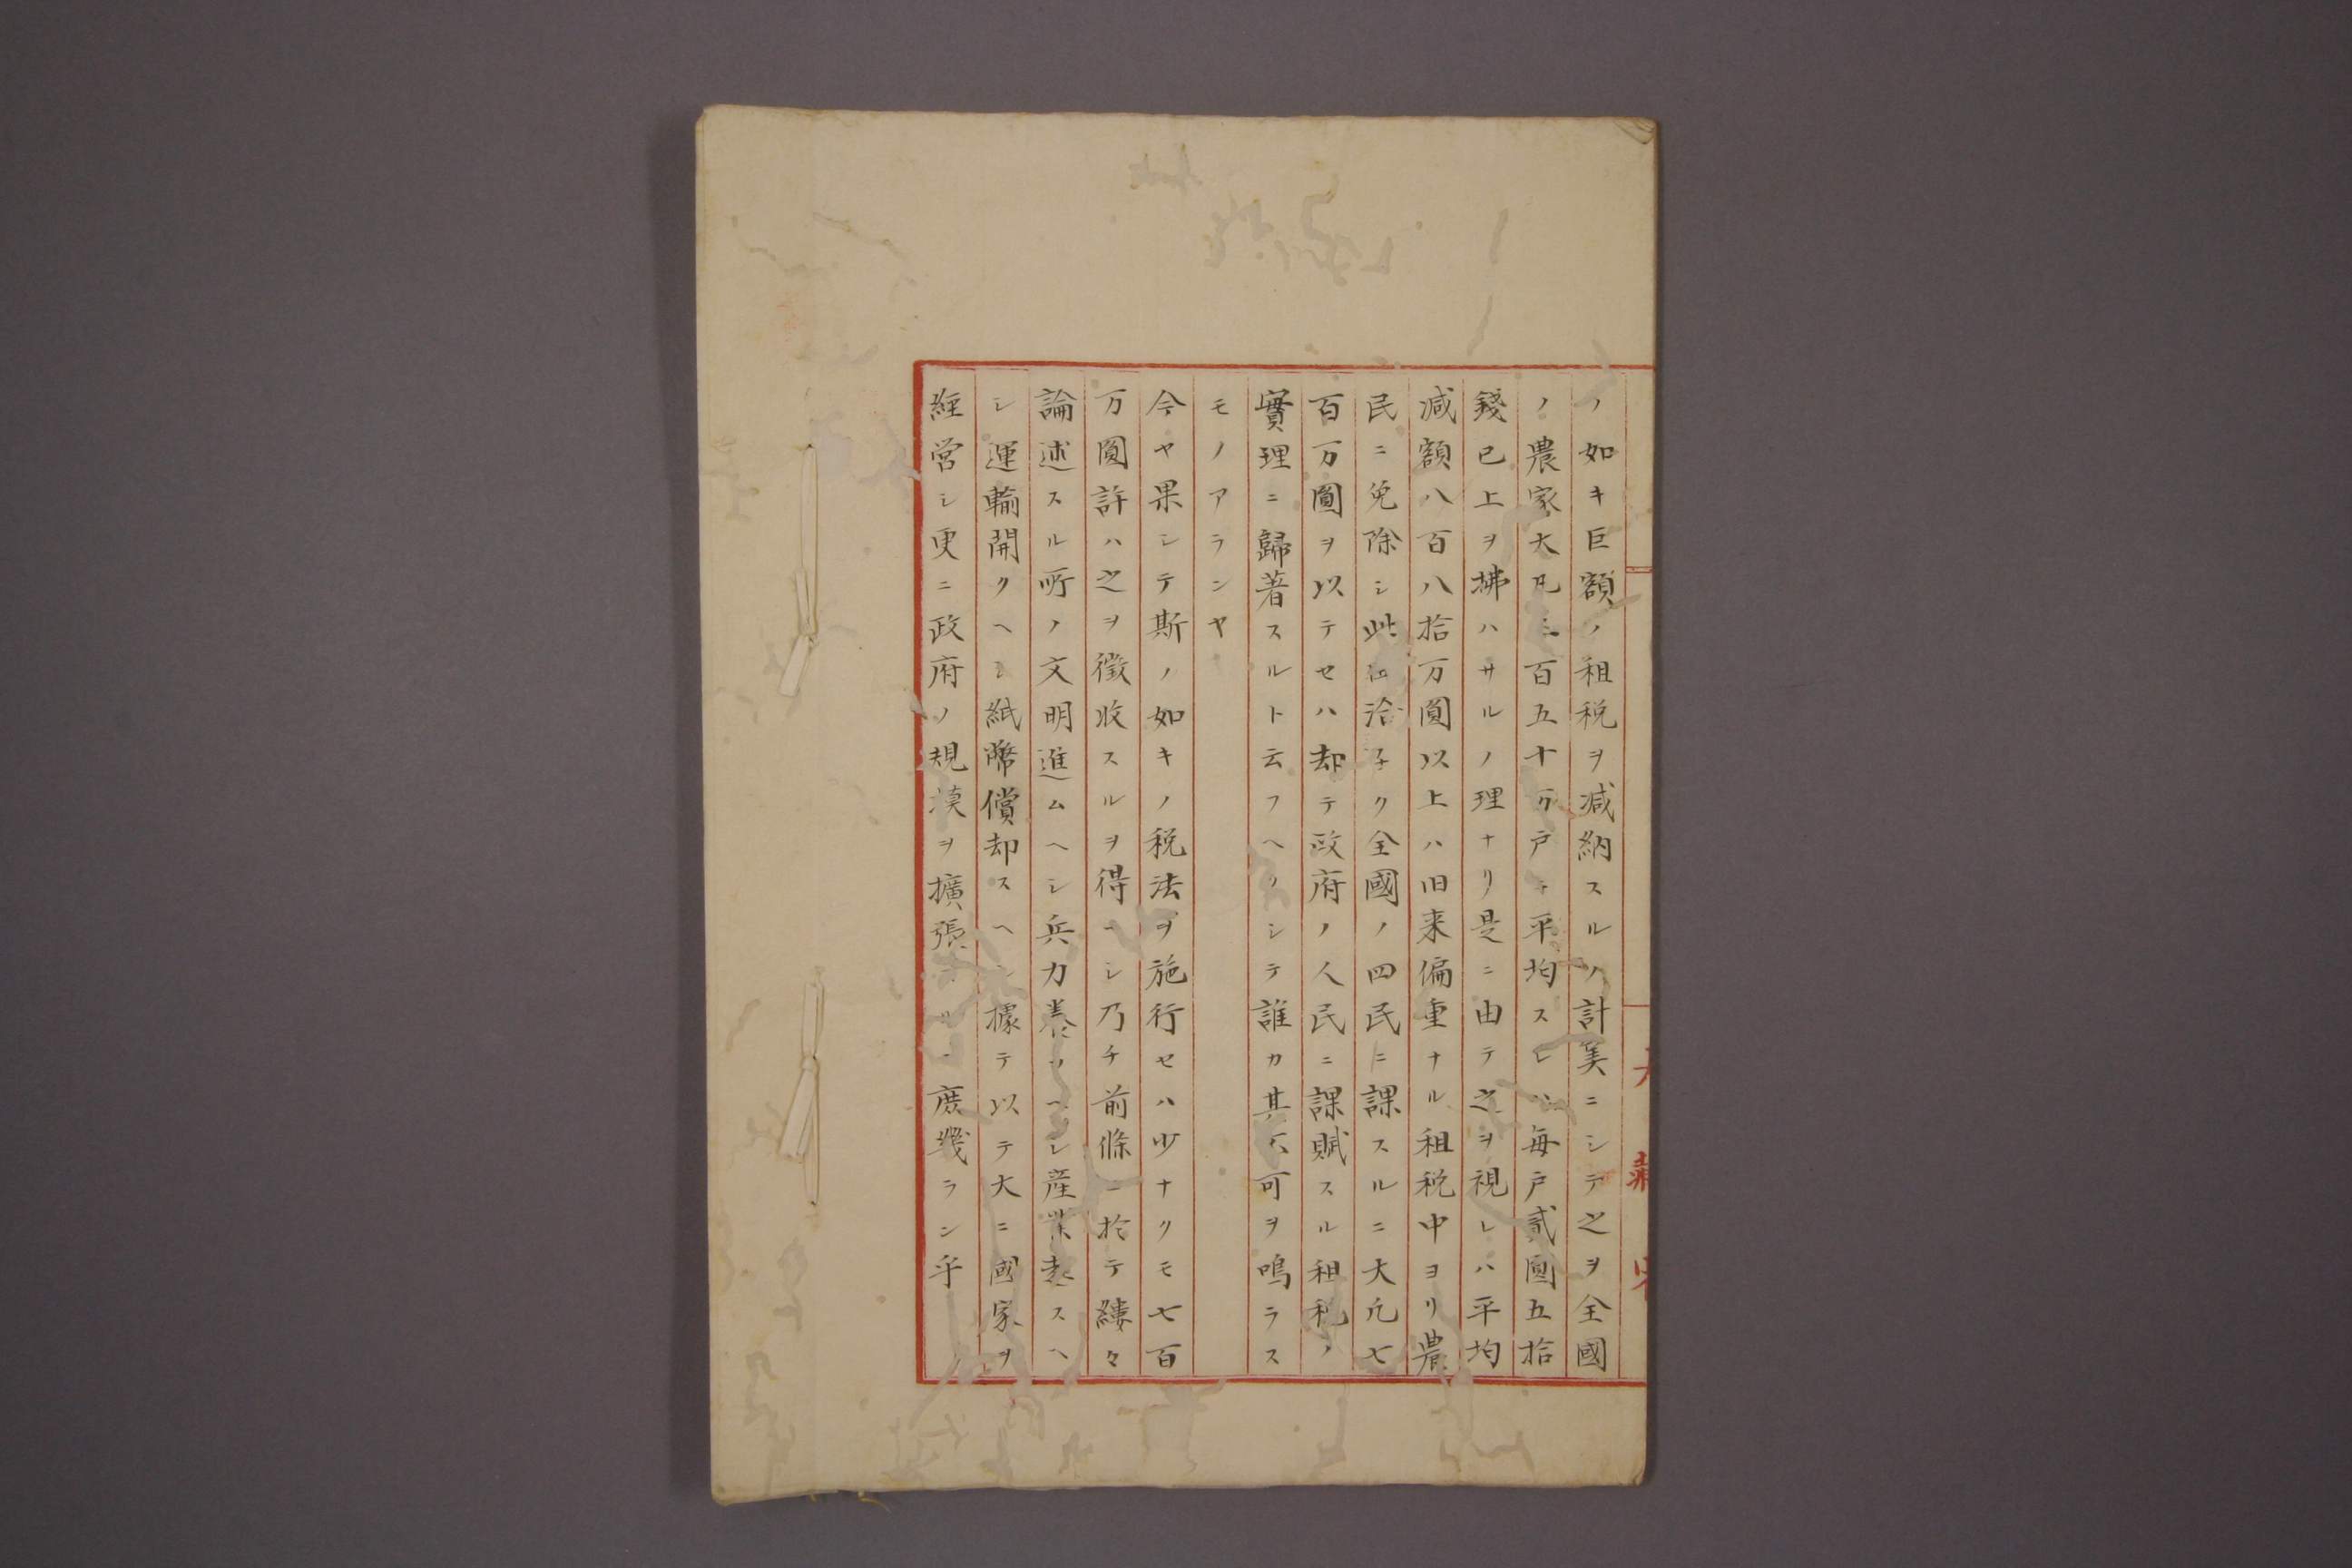 ノ如キ巨額ノ租税ヲ減納スルノ計筭ニシテ之ヲ全國
ノ農家大凡三百五十万戸ニ平均スレハ毎戸貳圓五拾
錢已上ヲ拂ハサルノ理ナリ是ニ由テ之ヲ視レハ平均
減額八百八拾万圓以上ハ旧来偏重ナル租税中ヨリ農
民ニ免除シ此ニ洽子ク全國ノ四民ニ課スルニ大凡七
百万圓ヲ以テセハ却テ政府ノ人民ニ課賦スル租税ノ
實理ニ歸著スルト云フヘクシテ誰カ其不可ヲ鳴ラス
モノアランヤ
今ヤ果シテ斯ノ如キノ税法ヲ施行セハ少ナクモ七百
万圓許ハ之ヲ徴收スルヲ得ヘシ乃チ前條ニ於テ縷々
論述スル所ノ文明進ムヘシ兵力養フヘシ産業起スヘ
シ運輸開クヘシ紙幣償却スヘシ據テ以テ大ニ國家ヲ
經営シ更ニ政府ノ規漠ヲ擴張スルニ庶幾ラン乎